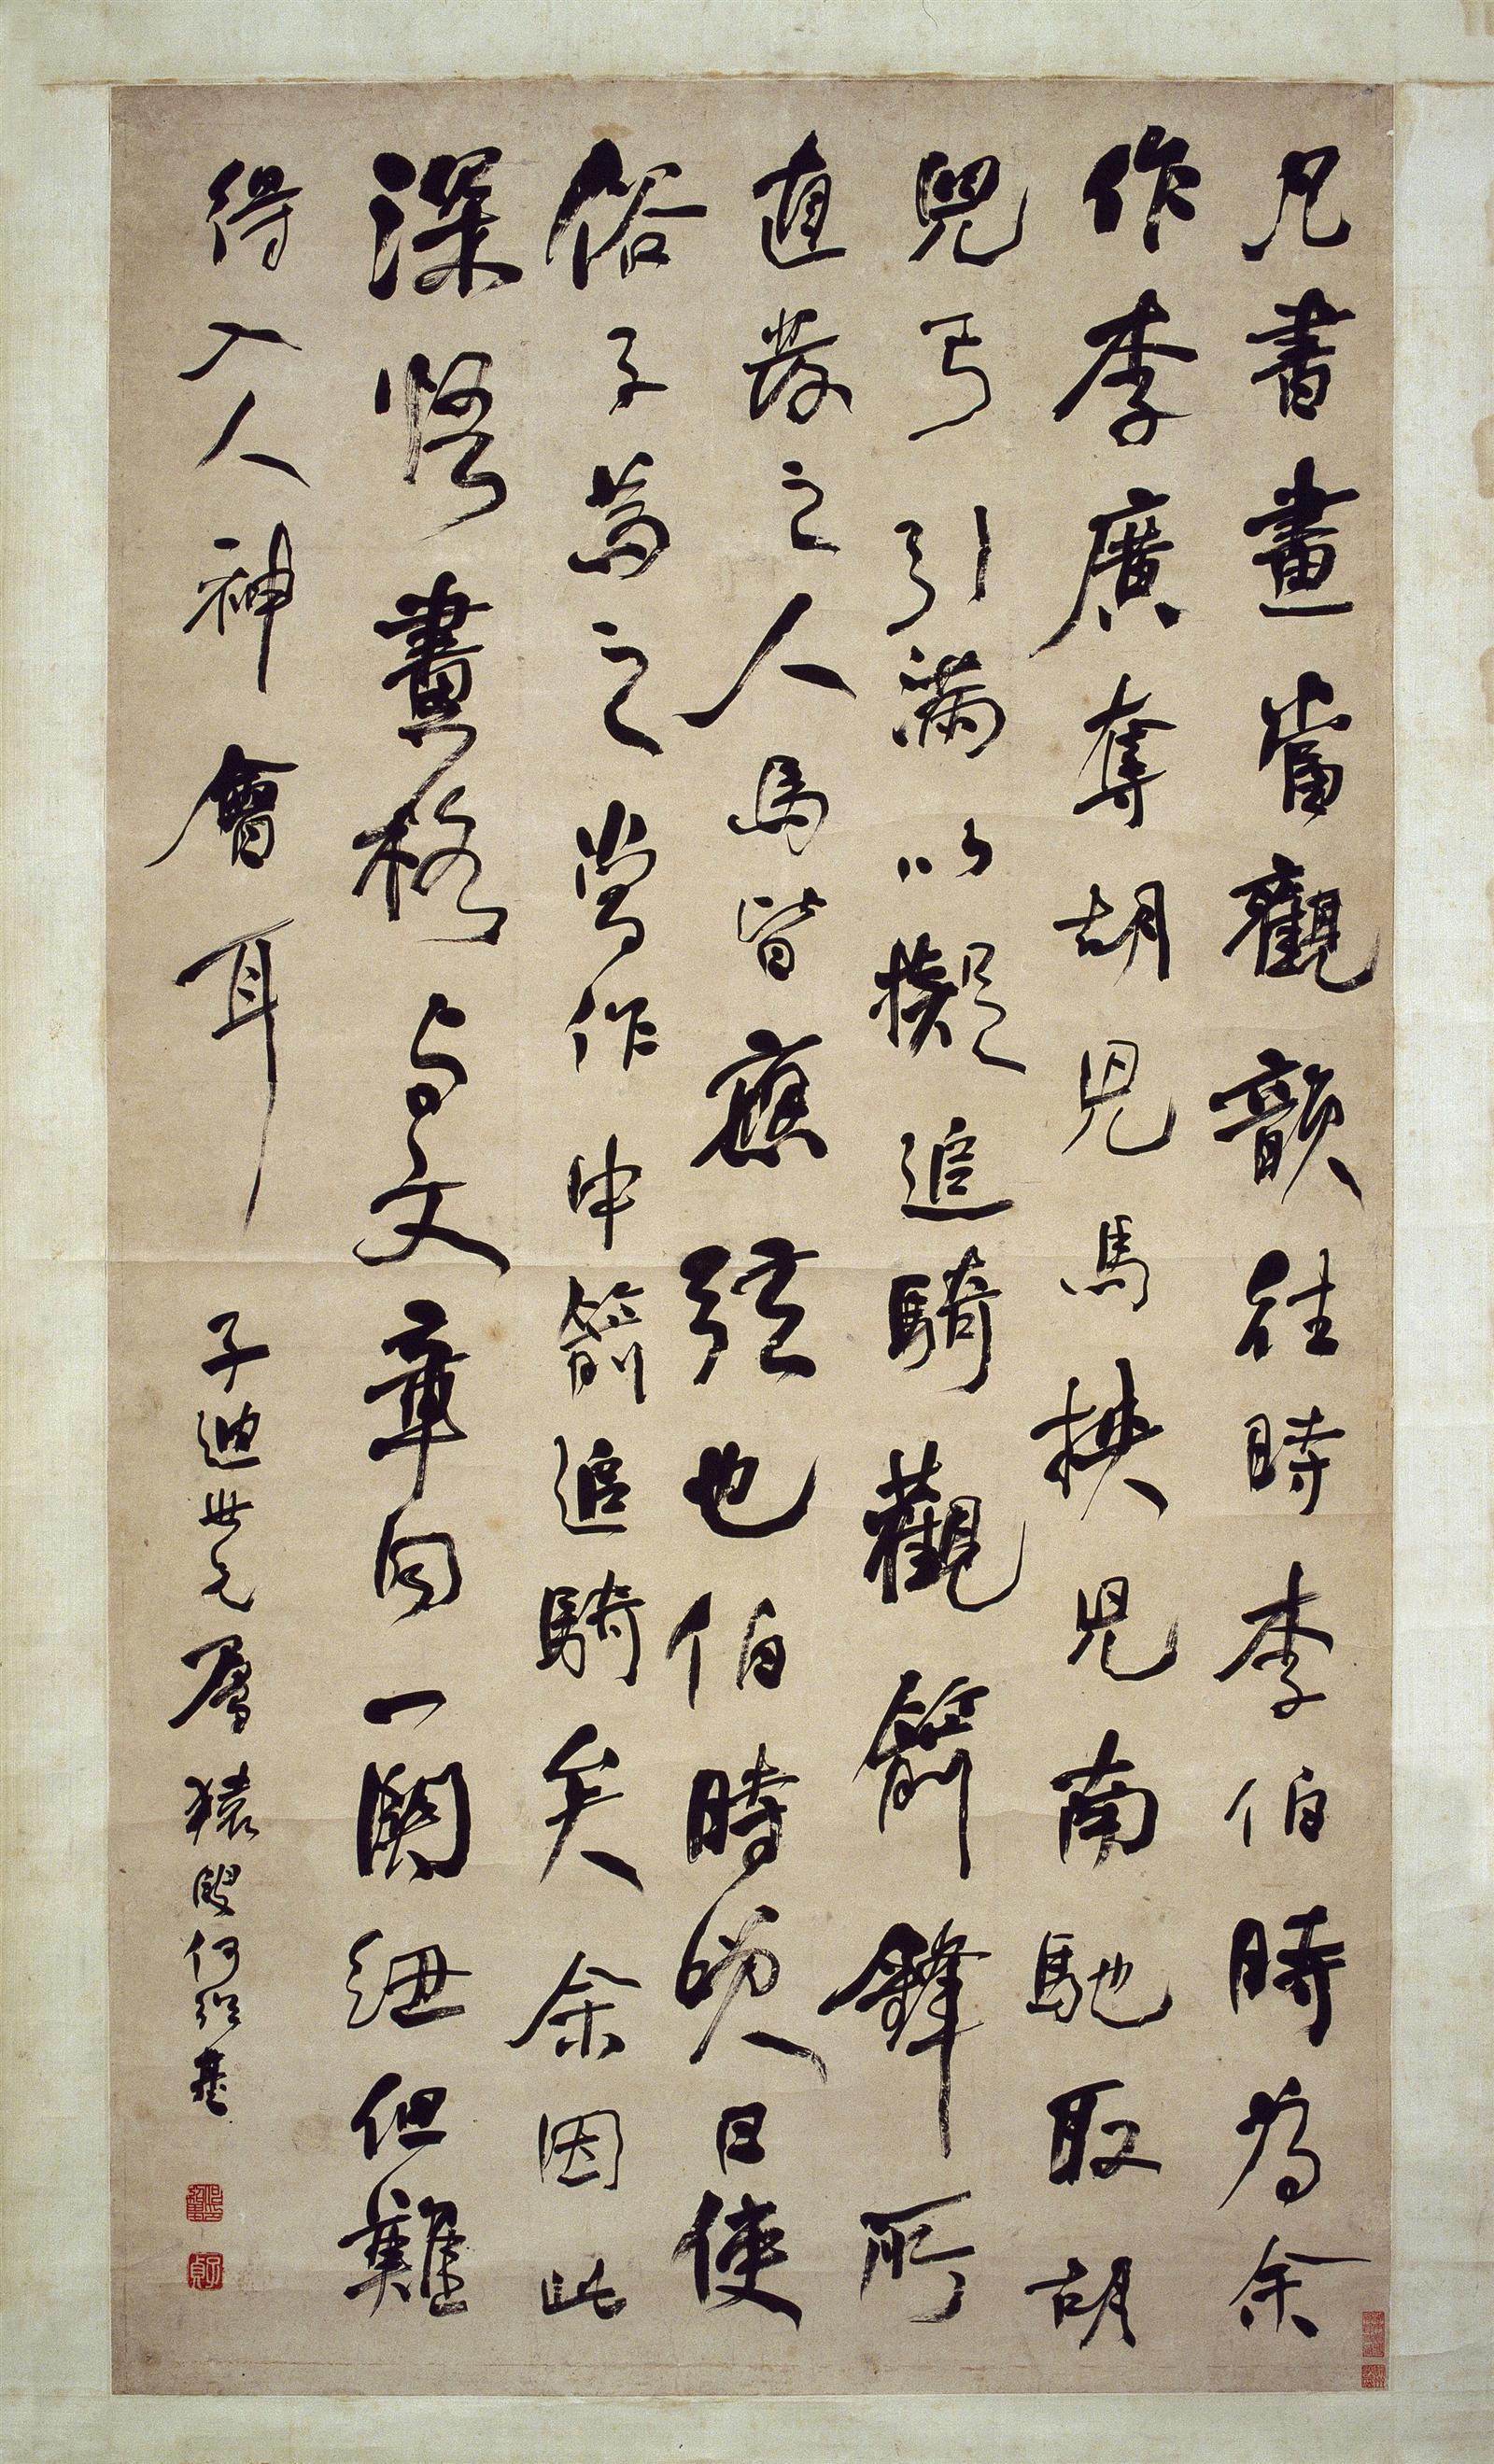 凡書畫當觀韻往時李伯時為余
作李廣奪胡兒馬挾兒南馳取胡
兒弓引滿以擬追騎觀箭鋒所
直發之人馬皆應弦也伯時笑曰使
俗子為之當作中箭追騎矣余因此
深悟畫格與文章同一關紐但難
得入人神會耳
子迪世兄屬 猨叟何紹基